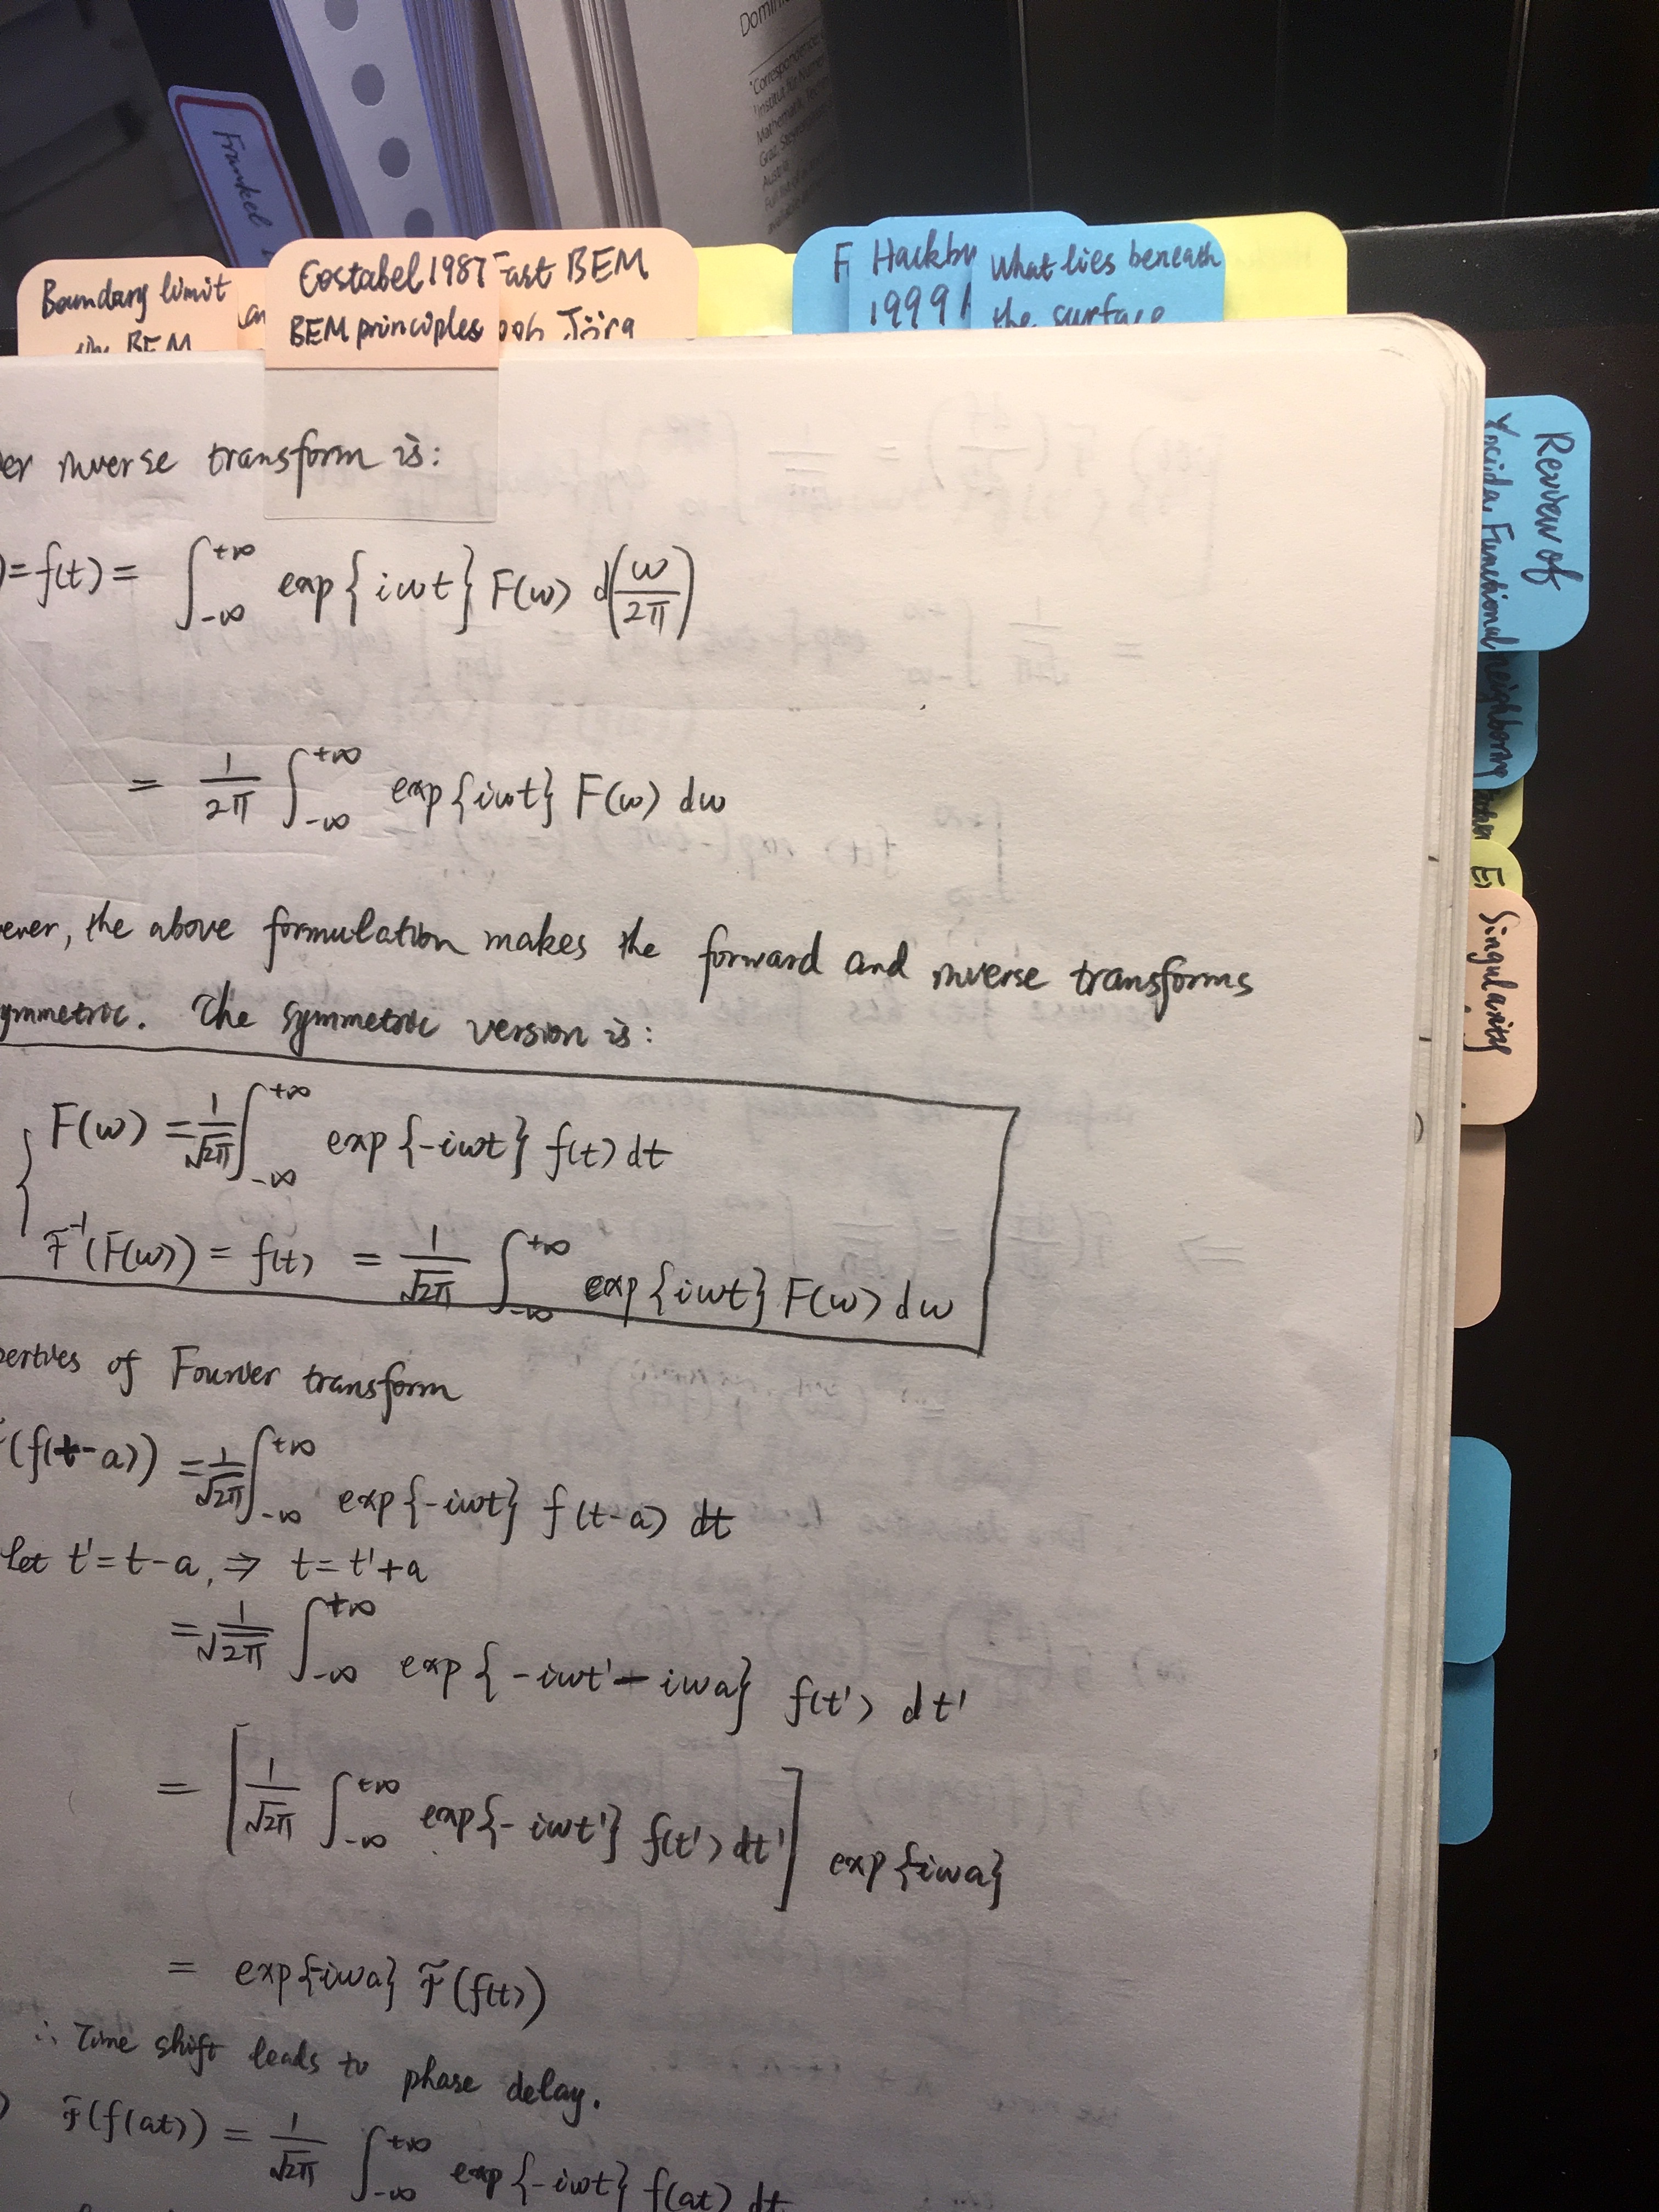 Domini
*Correspondence:
¹Institut für Numer
Mathematik, Tech
Graz, Steyrergasse
Austria
Full list of
available
Frankel
Boundary limit
in BEM
Costabel 1987
BEM principles
Fast BEM
Jörg
F
Hackbu
1999
What lies beneath
the surface
Review of
Yosida, Functional
neighboring
Singularity
er inverse transform is:
)=f(t)= ∫_{-∞}^{+∞} exp{iωt} F(ω) d(ω/2π)
= 1/2π ∫_{-∞}^{+∞} exp{iωt} F(ω) dω
ever, the above formulation makes the forward and inverse transforms
ymmetric. The symmetric version is:
F(ω) = 1/√2π ∫_{-∞}^{+∞} exp{-iωt} f(t) dt
F⁻¹(F(ω)) = f(t) = 1/√2π ∫_{-∞}^{+∞} exp{iωt} F(ω) dω
perties of Fourier transform
(f(t-a)) = 1/√2π ∫_{-∞}^{+∞} exp{-iωt} f(t-a) dt
Let t'=t-a, ⇒ t=t'+a
= 1/√2π ∫_{-∞}^{+∞} exp{-iωt'-iωa} f(t') dt'
= [1/√2π ∫_{-∞}^{+∞} exp{-iωt'} f(t') dt'] exp{-iωa}
= exp{-iωa} F(f(t))
∴ Time shift leads to phase delay.
) F(f(at)) = 1/√2π ∫_{-∞}^{+∞} exp{-iωt} f(at) dt